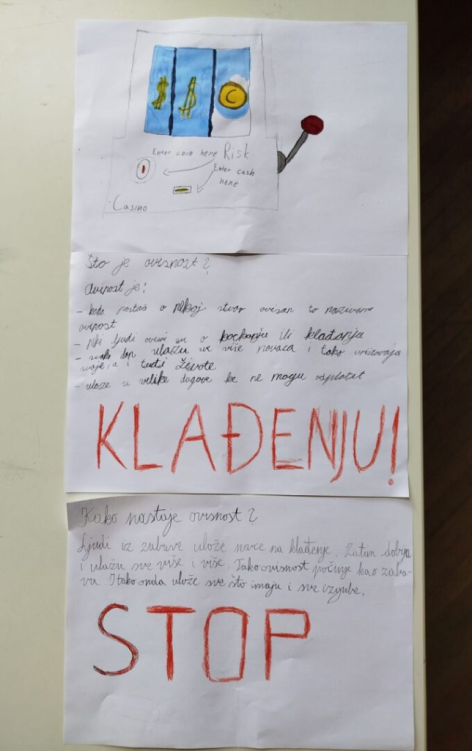 $ $ C
Enter cash here Risk
Enter cash
here
Casino
Što je ovisnost?
Ovisnost je:
- kada postaš o nekoj stvar ovisan to nazivamo
ovisnost
- Neki ljudi ovisni su o kockanju ili klađenju
- svaki dan ulažu sve više novaca i tako uništavaju
svoje i tuđe živote
- ulaze u velike dugove koje ne mogu isplatit
KLAĐENJU!
Kako nastaje ovisnost?
Ljudi iz zabave ulože novce na klađenje. Zatim dobiju
i ulažu sve više i više. Tako ovisnost počinje kao zaba-
va. I tako onda ulože sve što imaju i sve izgube.
STOP